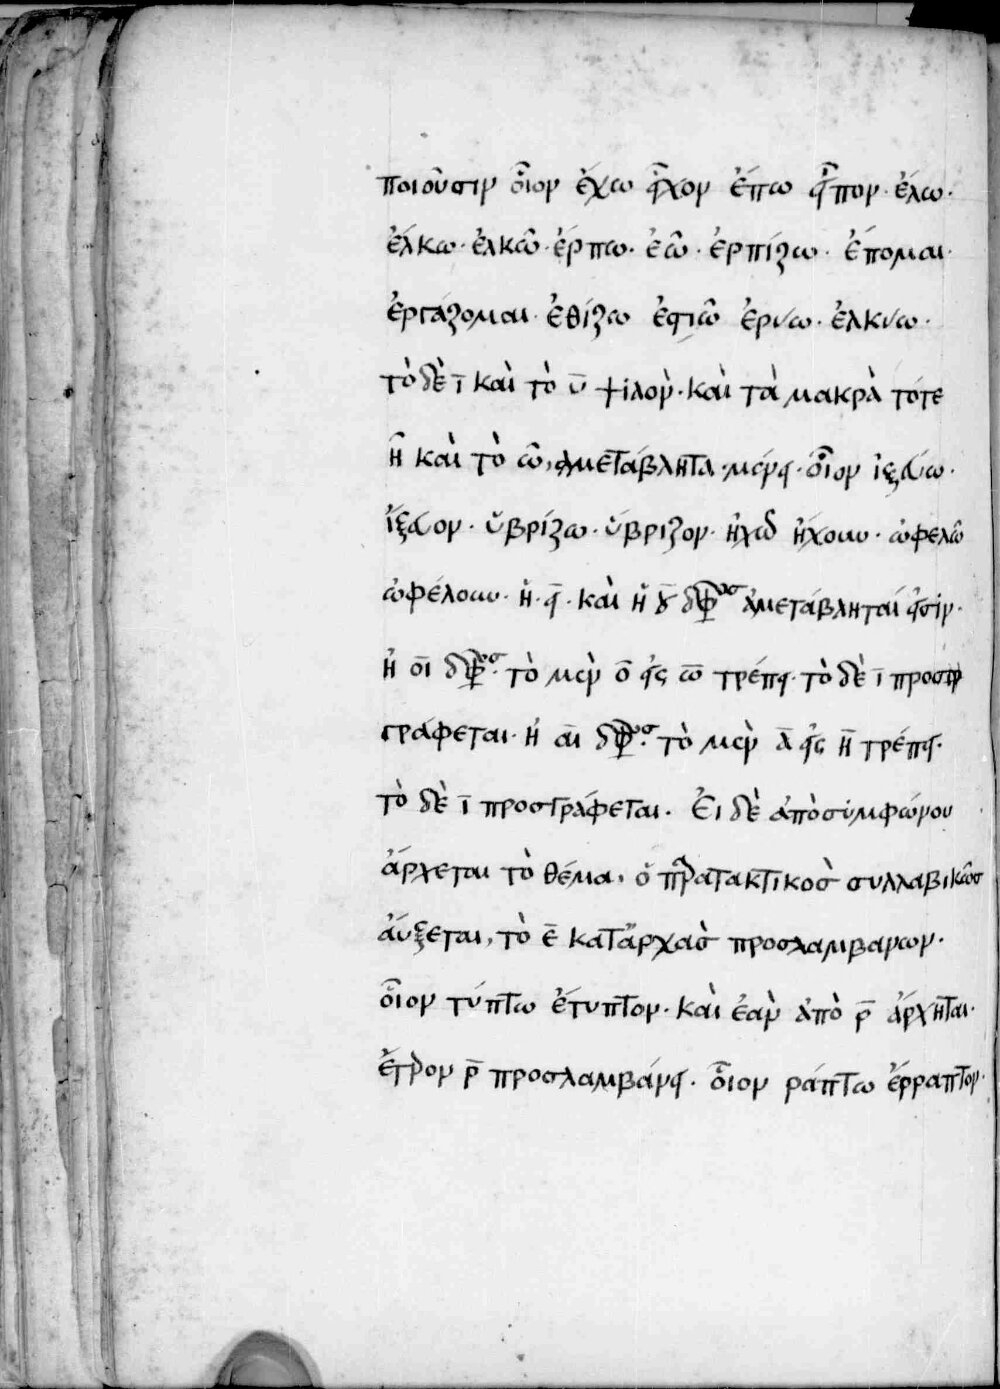 ποιοῦσιν οἷον ἔχω εἶχον ἕπω εἷπον· ἕλω·
ἕλκω· ἑλκῶ· ἕρπω· ἐῶ· ἑρπίζω· ἕπομαι·
ἐργάζομαι· ἐθίζω ἑστιῶ ἐρύω· ἑλκύω·
τὸ δὲ ῑ καὶ τὸ ῡ ψιλὸν· καὶ τὰ μακρὰ τότε
η καὶ τὸ ω, ἀμετάβλητα μένει· οἷον ἰξεύω·
ἴξευον· ὑβρίζω· ὕβριζον· ἠχῶ ἤχουν· ὠφελῶ
ὠφέλουν· ἡ ει καὶ ἡ ου δίφθογγος ἀμετάβληταί εἰσιν·
ἡ οι δίφθογγος· τὸ μὲν ο εἰς ω τρέπει· τὸ δὲ ῑ προσ
γράφεται· ἡ αι δίφθογγος· τὸ μὲν ᾱ εἰς η τρέπει·
τὸ δὲ ῑ προσγράφεται. Εἰ δὲ ἀπὸ συμφώνου
ἄρχεται τὸ θέμα, ὁ παρατακτικὸς συλλαβικῶς
ἀύξεται, τὸ ε καταρχὰς προσλαμβάνων·
οἷον τύπτω ἔτυπτον· καὶ ἐὰν ἀπὸ ρ ἄρχηται·
ἕτερον ρ προσλαμβάνει· οἷον ράπτω ἔρραπτον·